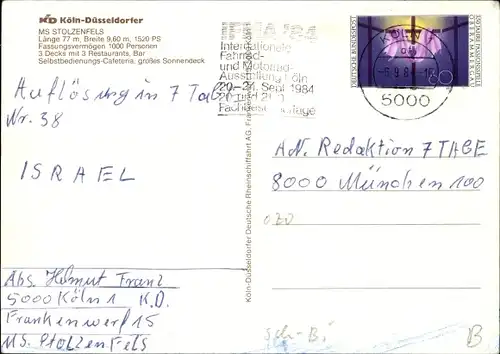 KD Köln-Düsseldorfer
MS STOLZENFELS
Länge 77 m, Breite 9,60 m, 1520 PS
Fassungsvermögen 1000 Personen
3 Decks mit 3 Restaurants, Bar
Selbstbedienungs-Cafeteria, großes Sonnendeck
'84
Internationale
Fahrrad-
und Motorrad-
Ausstellung Köln
20.-24. Sept. 1984
5000
DEUTSCHE BUNDESPOST
60
Auflösung in 7 Tage
Nr. 38
ISRAEL
AN. Redaktion 7 TAGE
8000 München 100
Köln-Düsseldorfer Deutsche Rheinschiffahrt AG, Frankenwerft
Abs. Helmut Franz
5000 Köln 1 K.D.
Frankenwerf 15
MS. Stolzenfels
Sch-B.
B